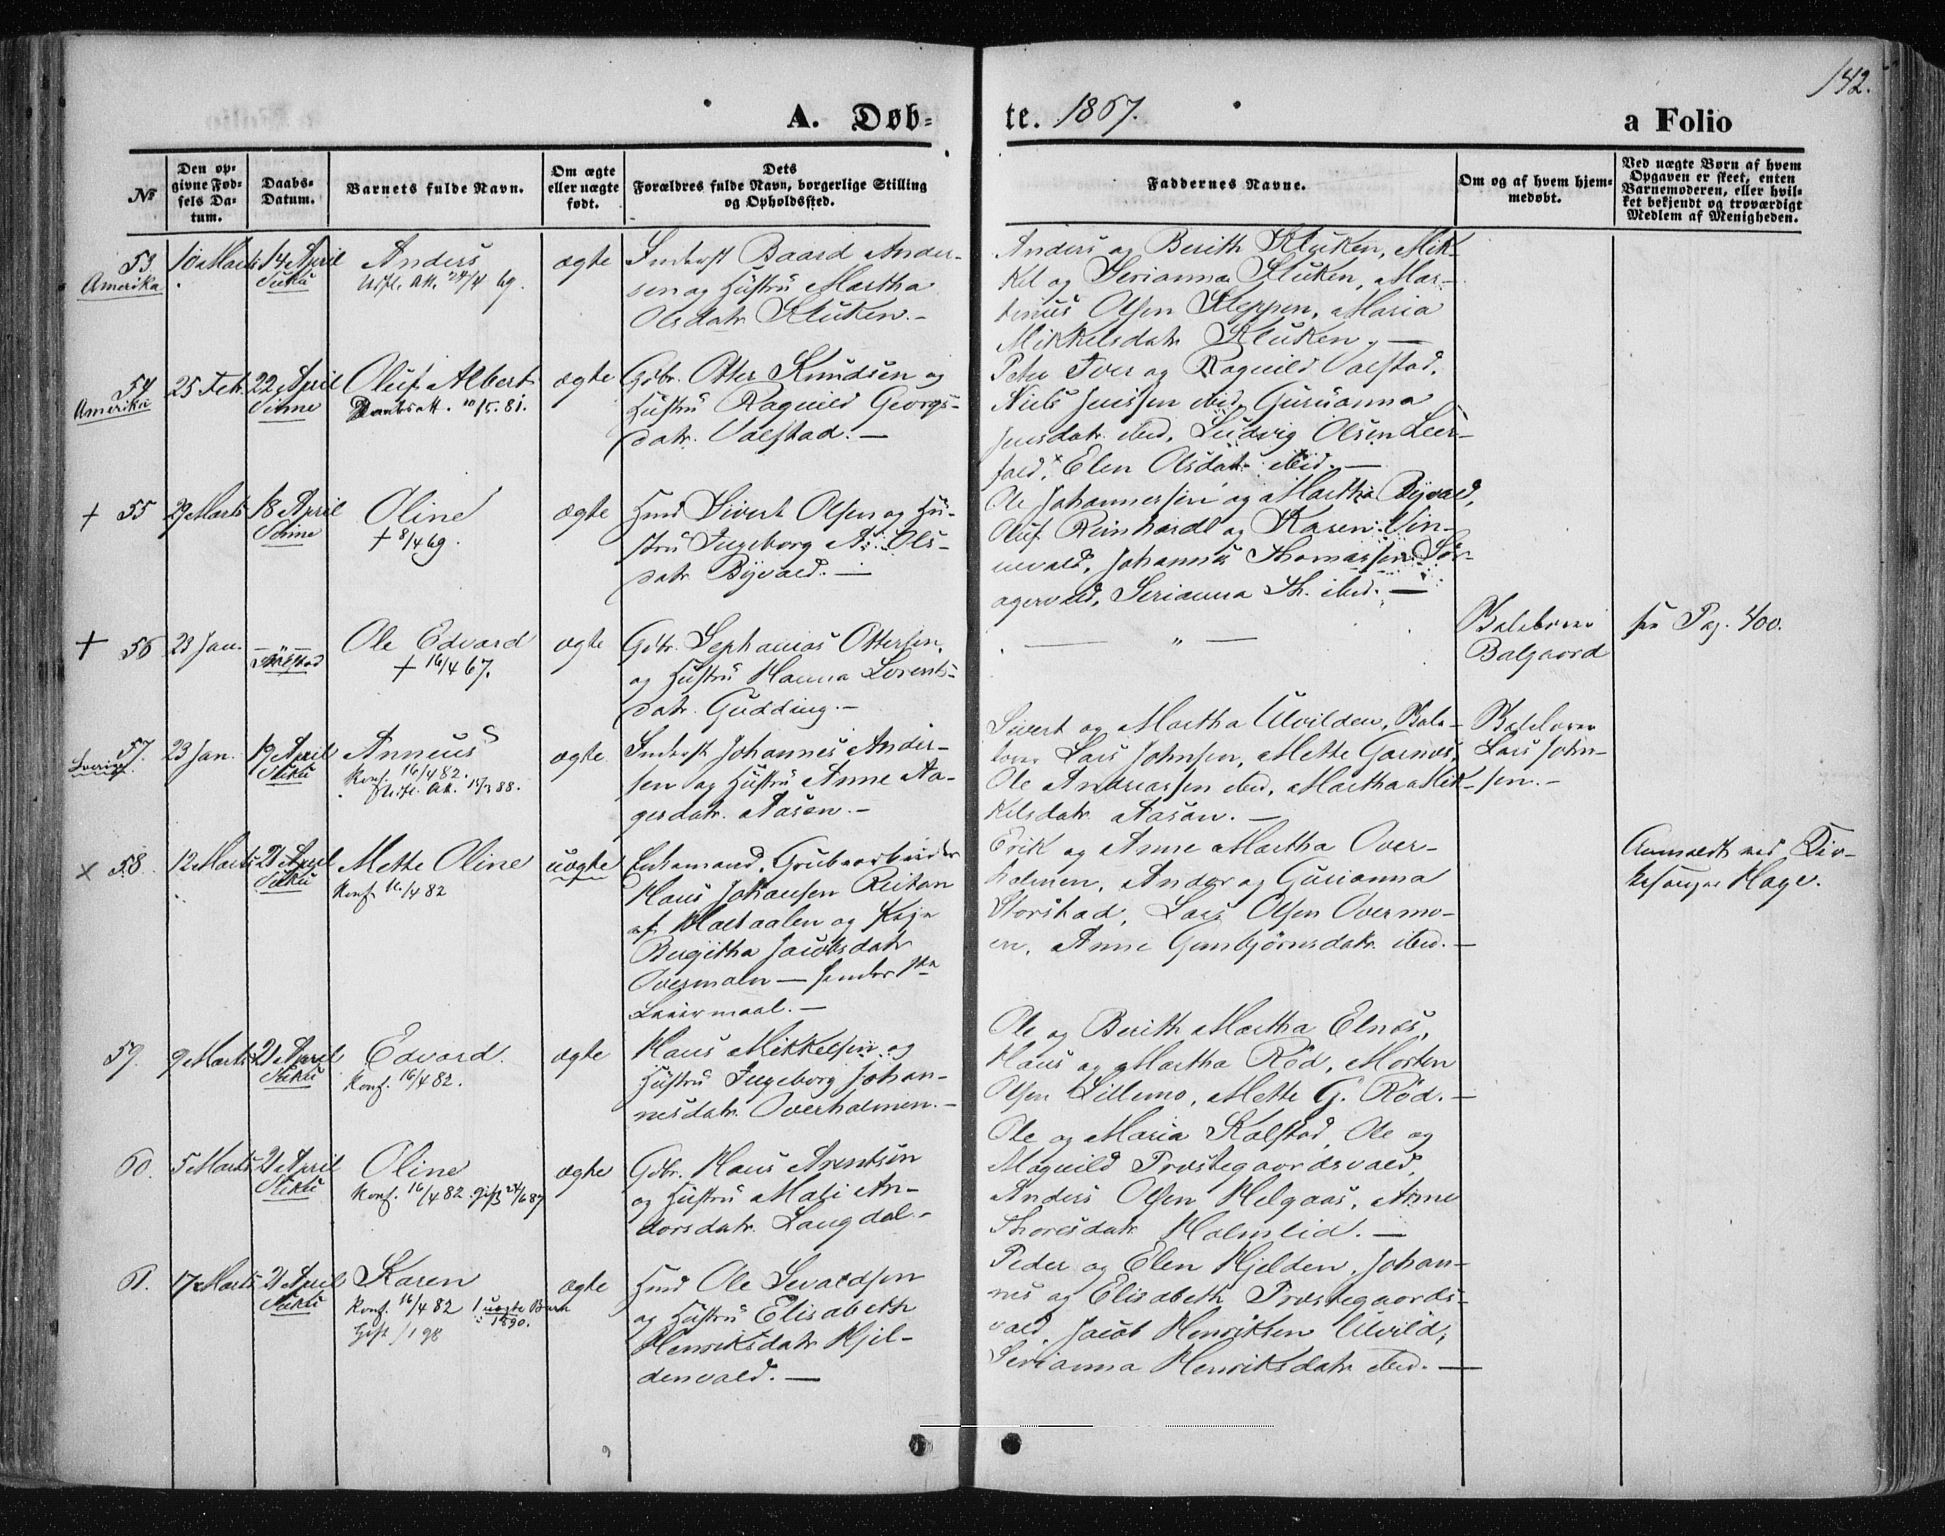 142.
A. Døb-
te. 1867.
a Folio
No
Den op-
givne Fød-
sels Da-
tum.
Daabs-
Datum.
Barnets fulde Navn.
Om ægte
eller uægte
født.
Dets
Forældres fulde Navn, borgerlige Stilling
og Opholdssted.
Faddernes Navne.
Om og af hvem hjem-
medøbt.
Ved uægte Børn af hvem
Opgaven er skeet, enten
Barnemoderen, eller hvil-
ket bekjendt og troværdigt
Medlem af Menigheden.
53. 10 Marts 14 April Anders ægte
Amerika
Baard Ander-
sen og Hustru Martha
Olsdatr Kluken.-
Anders og Berith Kluken, Mik-
kel og Serianna Kluken, Mar-
tinus Olsen Kleppen, Maria
Mikkelsdatr Kluken. -
54 25 Feb. 22 April Oluf Albert ægte
Amerika Vinne Daabsatt. 10/5.81.
Gdbr. Otter Knudsen og
Hustru Ragnild Georgs-
datr. Valstad. -
Peter Iver og Ragnild Valstad,
Niels Jenssen ibid, Gurianna
Jensdatr. ibid, Ludvig Olsen Leer-
fald, Elen Olsdatr ibid. -
+ 55 29 Marts 18 April Oline ægte
Vinne + 8/4 69.
Hmd Sivert Olsen og Hu-
stru Ingeborg A. Ols-
datr Byvald. -
Ole Johannessen og Martha Byvald,
Oluf Reinhardt og Karen Vin-
nevald, Johannes Thomassen
Serianna Th. ibid. -
+ 56 23 Jan. - Ole Edvard ægte
+ 16/4 67.
Gdbr. Sephanias Ottersen,
og Hustru Hanna Lorents-
datr. Gudding. -
- " -
Balgaard
Pag. 400.
57. 23 Jan. 19 April Anneus ægte
Konf. 16/4 82.
Johannes Ander-
sen og Hustru Anne Aa-
gesdatr. Aasen. -
Sivert og Martha Ulvilden,
Lars Johnsen, Mette Garnæs,
Ole Andreassen ibid, Martha Mik-
kelsdatr Aasen. -
Lars John-
sen. -
x 58. 12 Marts 21 April Mette Oline uægte
Konf. 16/4 82
Enkemand, Grubearbeider
Hans Johansen Reitan
af Holtaalen og Kaja
Birgitha Jacobsdatr
Overmoen
Leiermaal. -
Erik og Anne Martha Over-
holmen, Andor og Gurianna
Storstad, Lars Olsen Overmo-
en, Anne Gunbjørnsdatr. ibid. -
Hage.
59. 9 Marts 21 April Edvard. ægte
Konf. 16/4 82.
Hans Mikkelsen og
Hustru Ingeborg Johan-
nesdatr. Overholmen. -
Ole og Berith Martha Elnæs,
Hans og Martha Rød, Morten
Olsen Lillemo, Mette G. Rød. -
60. 5 Marts 21 April Oline ægte
Konf. 16/4 82. gift 24/6 87
Gdbr. Hans Arntsen
og Hustru Mali An-
dorsdatr. Langdal. -
Ole og Maria Kalstad, Ole og
Magnild Præstegaardsvald,
Anders Olsen Helgaas, Anne
Thoresdatr Holmlid. -
61. 17 Marts 21 April Karen ægte
Konf. 16/4 82 1 uægte Barn
1890.
Gift /1 98
Hmd Ole Sevaldsen
og Hustru Elisabeth
Henriksdatr Hjel-
denvald. -
Peder og Elen Hjelden, Johan-
nes og Elisabeth Præstegaards-
vald, Jacob Henriksen Ulvild,
Serianna Henriksdatr ibid. -